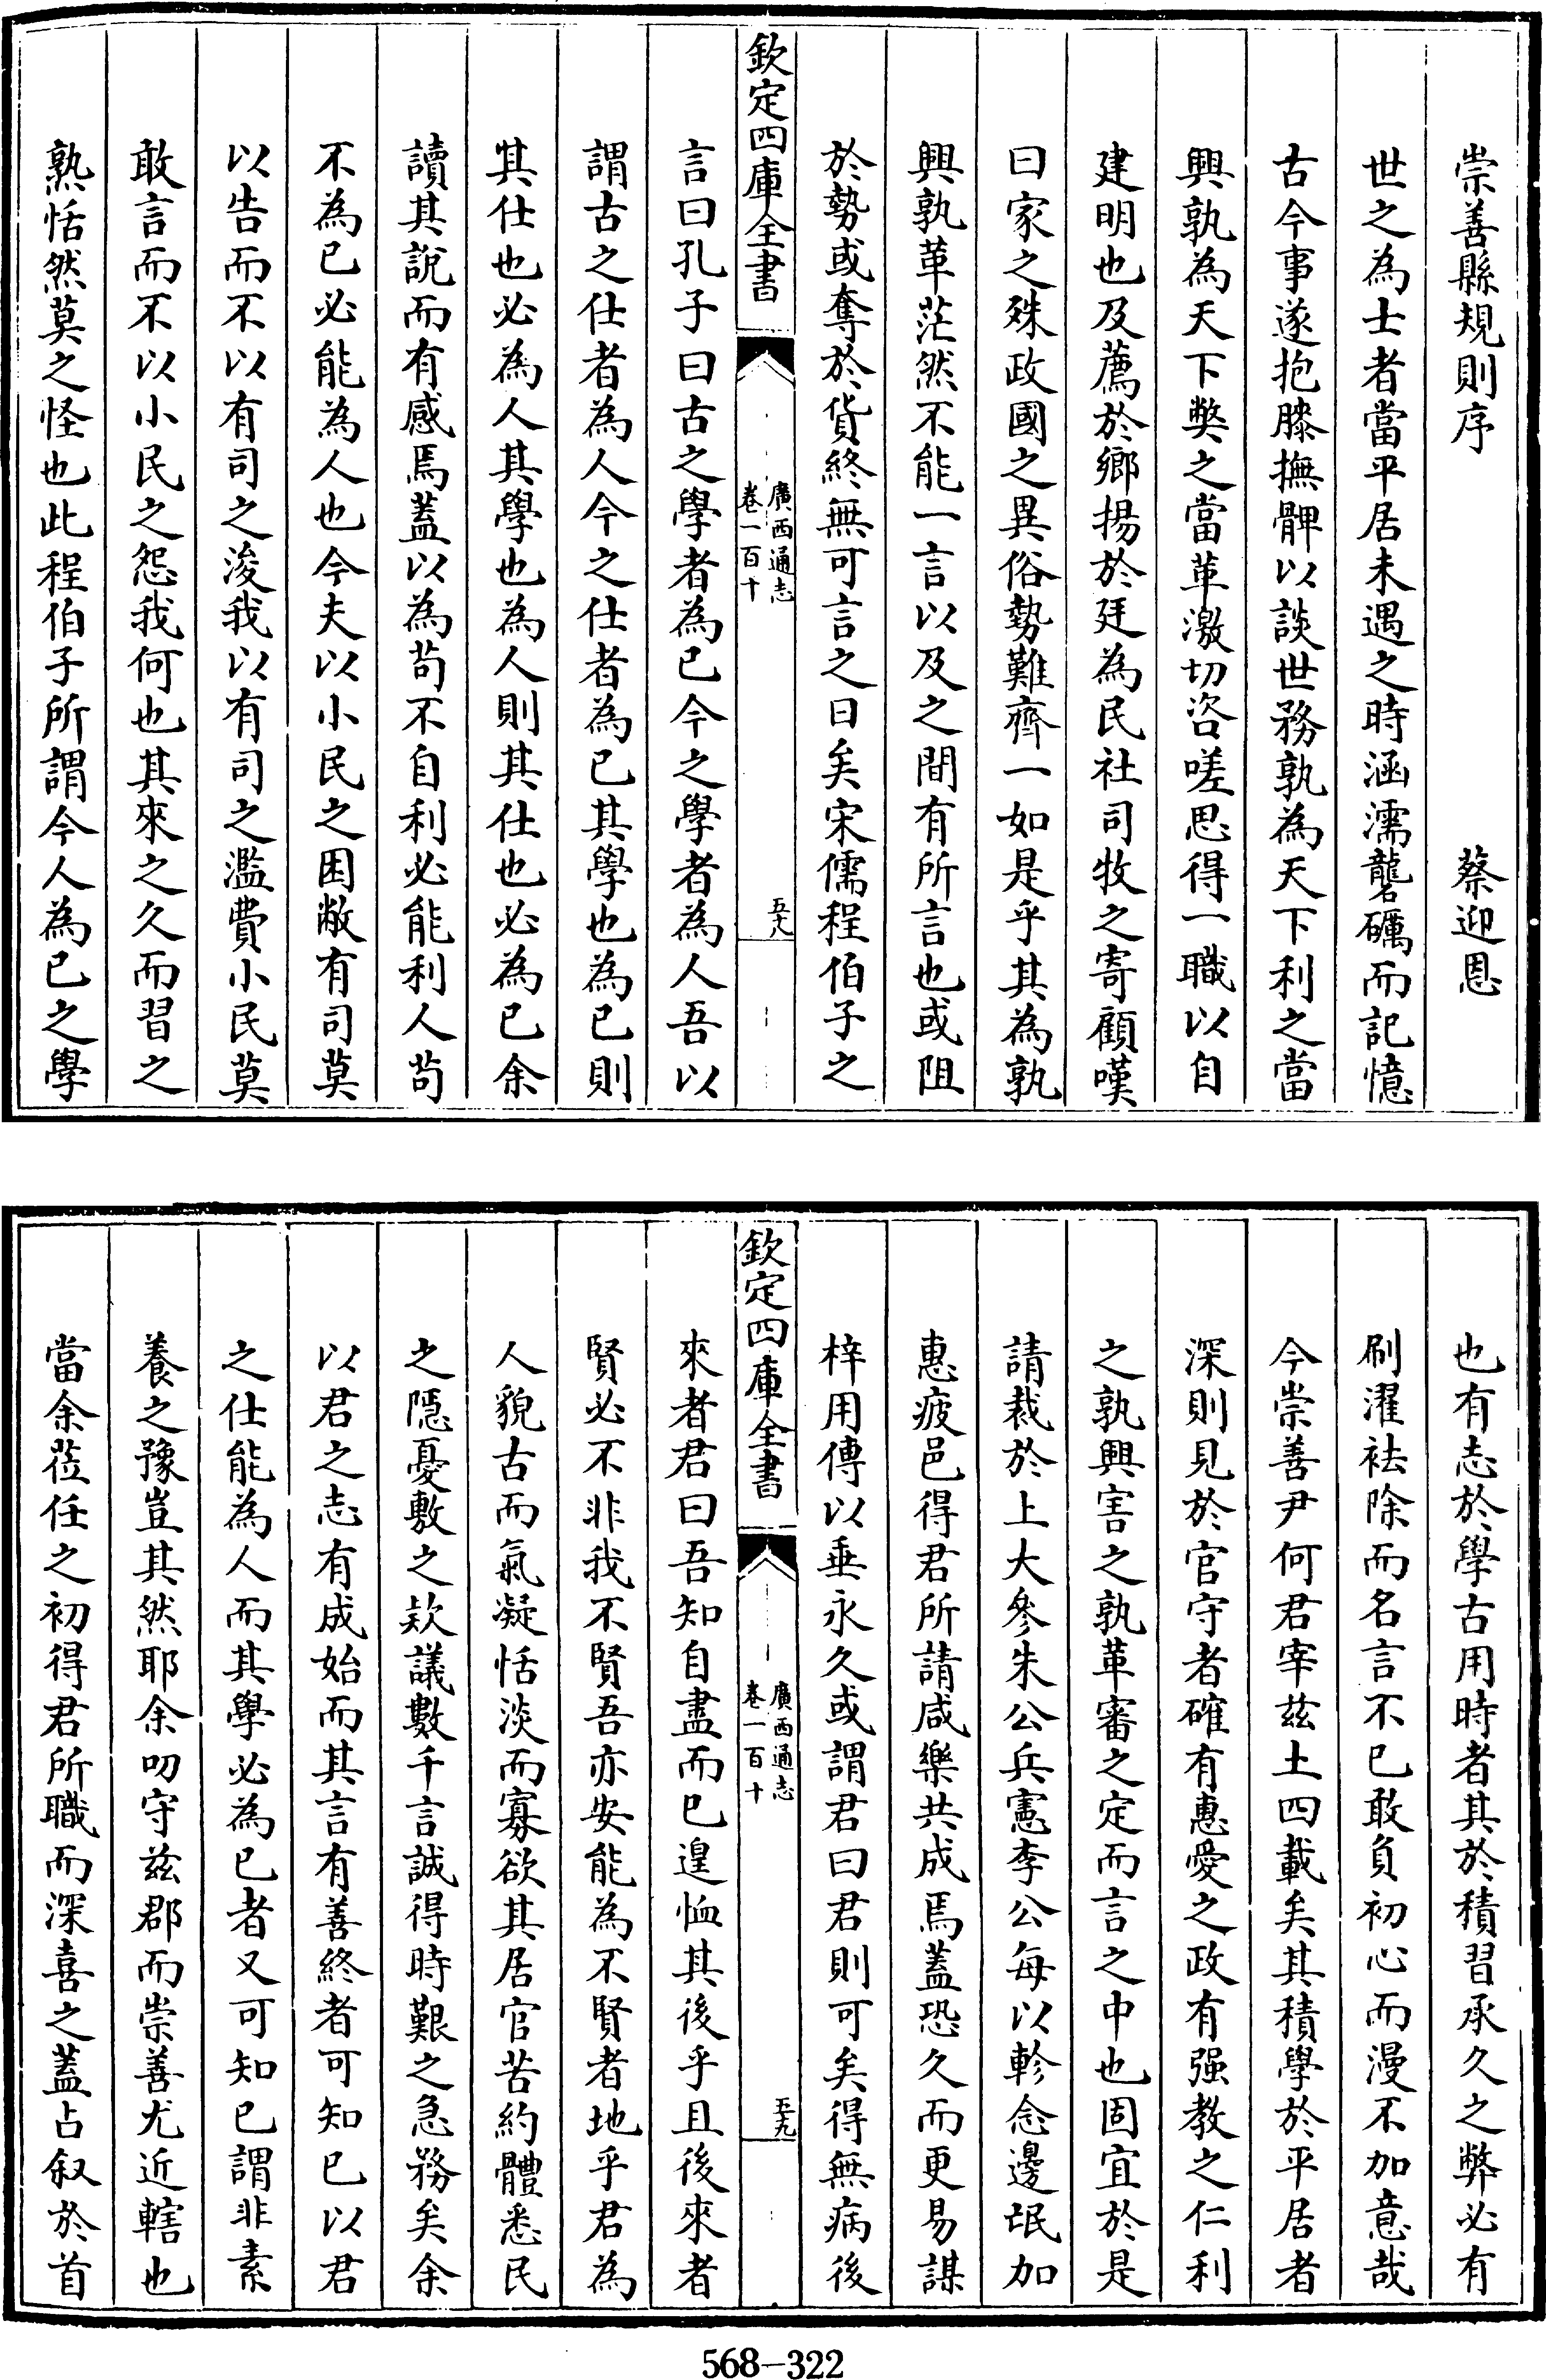 崇善縣規則序　蔡迎恩
世之為士者當平居未遇之時涵濡礲礪而記憶
古今事遂抱膝撫髀以談世務孰為天下利之當
興孰為天下弊之當革激切咨嗟思得一職以自
建明也及薦於鄉揚於廷為民社司牧之寄顧嘆
曰家之殊政國之異俗勢難齊一如是乎其為孰
興孰革茫然不能一言以及之間有所言也或阻
於勢或奪於貨終無可言之日矣宋儒程伯子之
欽定四庫全書
廣西通志
卷一百十
五十八
言曰孔子曰古之學者為已今之學者為人吾以
謂古之仕者為人今之仕者為已其學也為已則
其仕也必為人其學也為人則其仕也必為已余
讀其說而有感焉蓋以為苟不自利必能利人苟
不為已必能為人也今夫以小民之困敝有司莫
以告而不以有司之浚我以有司之濫費小民莫
敢言而不以小民之怨我何也其來之久而習之
熟恬然莫之怪也此程伯子所謂今人為已之學
也有志於學古用時者其於積習承久之弊必有
刷濯袪除而名言不已敢負初心而漫不加意哉
今崇善尹何君宰茲土四載矣其積學於平居者
深則見於官守者確有惠愛之政有强教之仁利
之孰興害之孰革審之定而言之中也固宜於是
請裁於上大參朱公兵憲李公每以軫念邊氓加
惠疲邑得君所請咸樂共成焉蓋恐久而更易謀
梓用傳以垂永久或謂君曰君則可矣得無病後
欽定四庫全書
廣西通志
卷一百十
五十九
來者君曰吾知自盡而已遑恤其後乎且後來者
賢必不非我不賢吾亦安能為不賢者地乎君為
人貌古而氣凝恬淡而寡欲其居官苦約體悉民
之隱憂敷之欵議數千言誠得時艱之急務矣余
以君之志有成始而其言有善終者可知已以君
之仕能為人而其學必為已者又可知已謂非素
養之豫豈其然耶余叨守茲郡而崇善尤近轄也
當余蒞任之初得君所職而深喜之蓋占叙於首
568-322